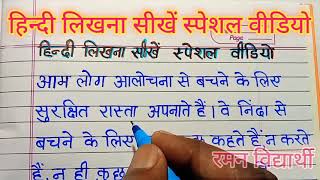 हिन्दी लिखना सीखें स्पेशल वीडियो
Page
हिन्दी लिखना सीखें स्पेशल वीडियो
आम लोग आलोचना से बचने के लिए
सुरक्षित रास्ता अपनाते हैं। वे निंदा से
बचने के लिए कहते हैं, न करते
हैं, न ही कुछ
रमन विद्यार्थी